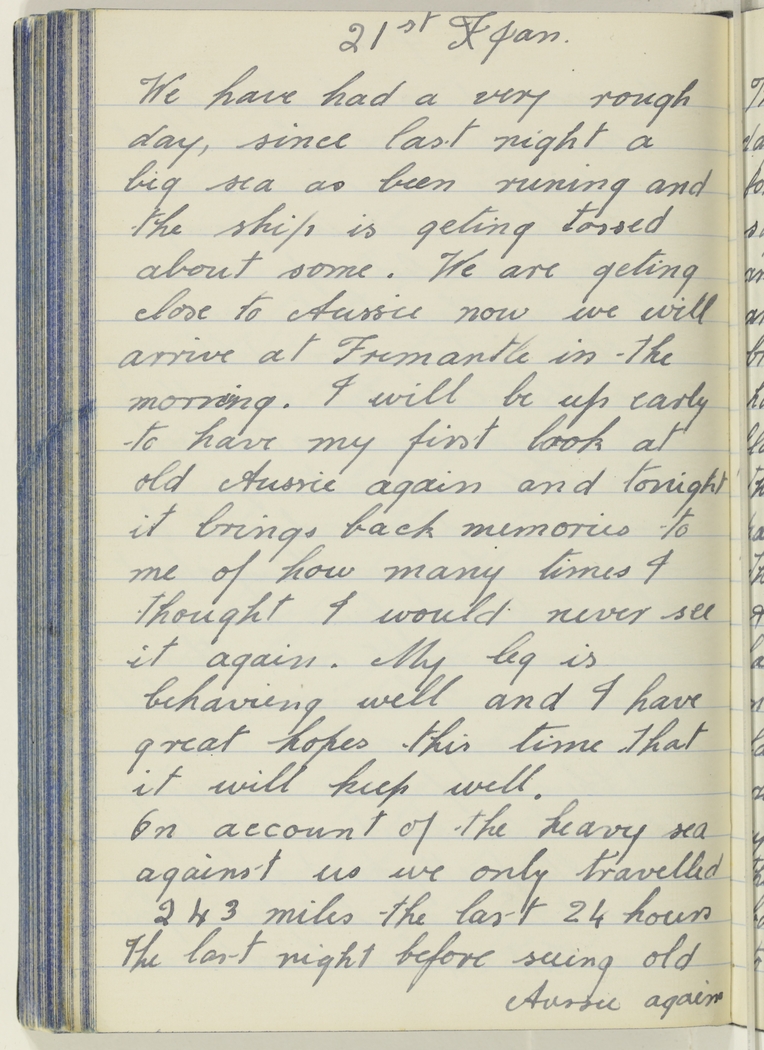 21st Jan.
We have had a very rough
day, since last night a
big sea as been runing and
the ship is geting tossed
about some. We are geting
close to Aussie now we will
arrive at Fremantle in the
morning. I will be up early
to have my first look at
old Aussie again and tonight
it brings back memories to
me of how many times I
thought I would never see
it again. My leg is
behaveing well and I have
great hopes this time that
it will keep well.
On account of the heavy sea
against us we only travelled
243 miles the last 24 hours
The last night before seeing old
Aussie again